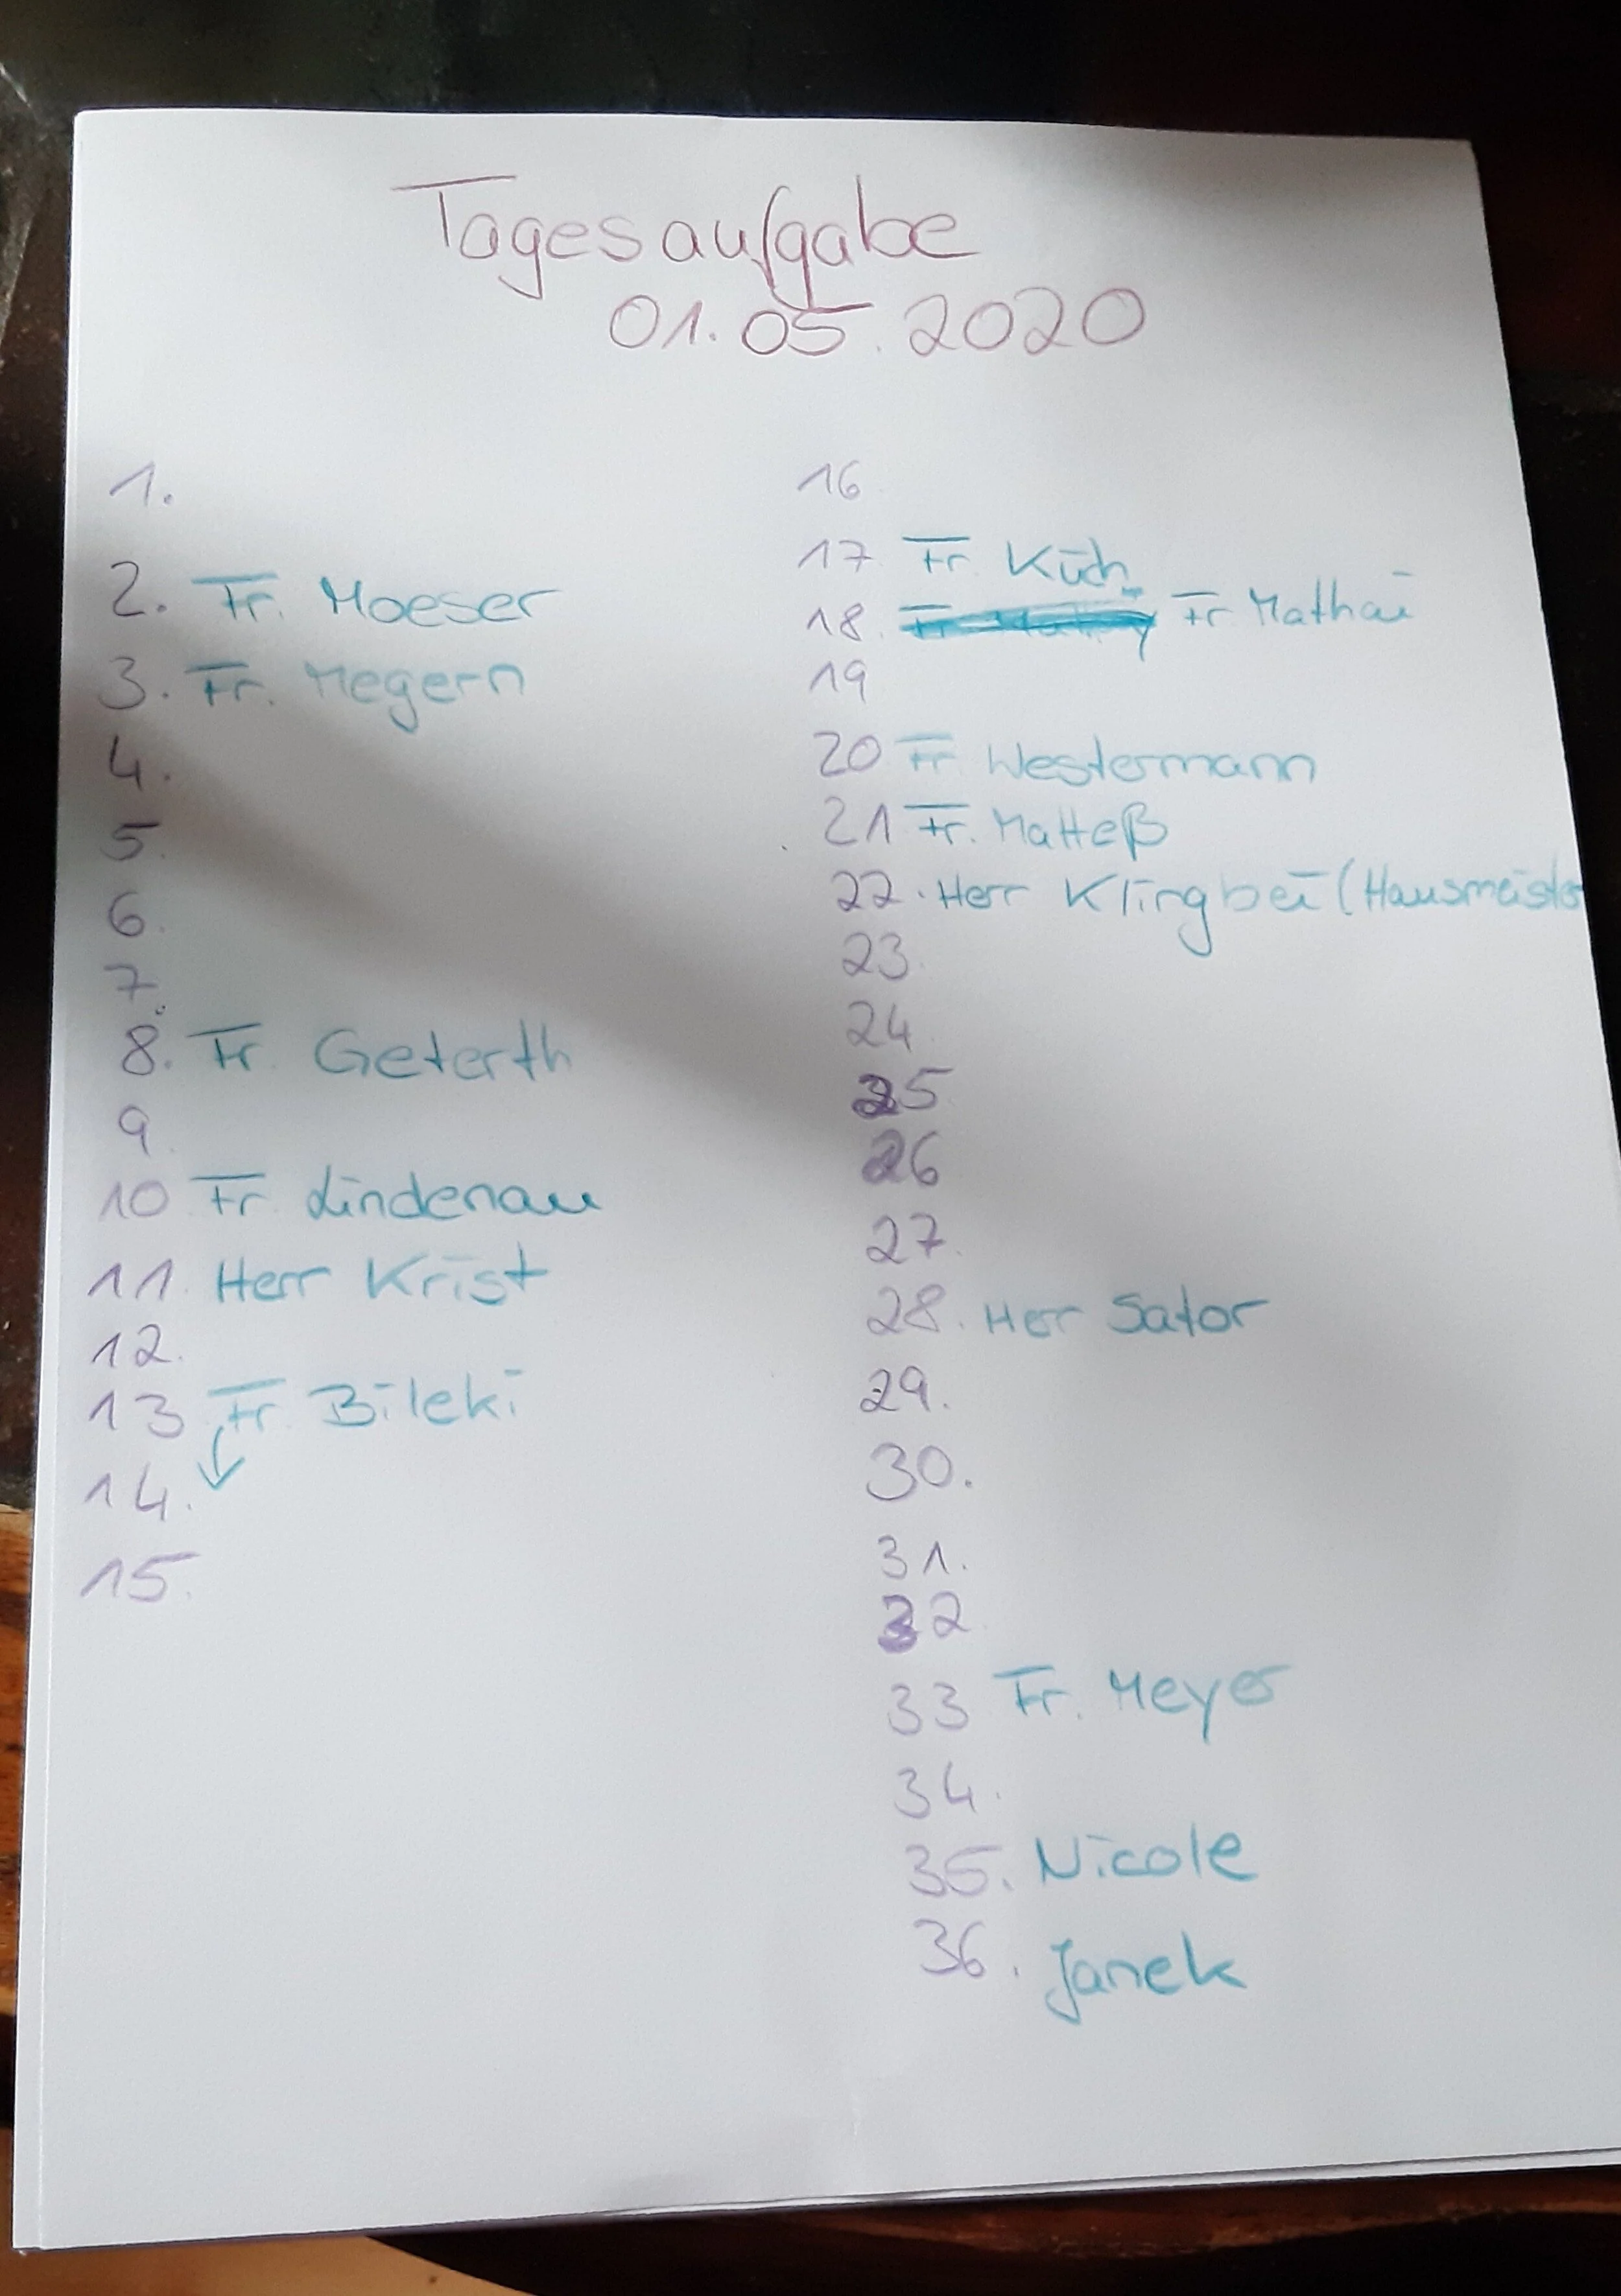 Tagesaufgabe
01.05.2020
1.
2. Fr. Moeser
3. Fr. Megern
4.
5.
6.
7.
8. Fr. Geterth
9.
10 Fr Lindenau
11. Herr Krist
12.
13 Fr. Bileki
14.
15.
16
17 Fr Küch
18. Fr Mathai
19
20 Fr Westermann
21 Fr. Matteß
22. Herr Klingbei (Hausmeister
23.
24
25
26
27.
28. Herr Sator
29.
30.
31.
32
33 Fr. Meyer
34.
35. Nicole
36. Janek